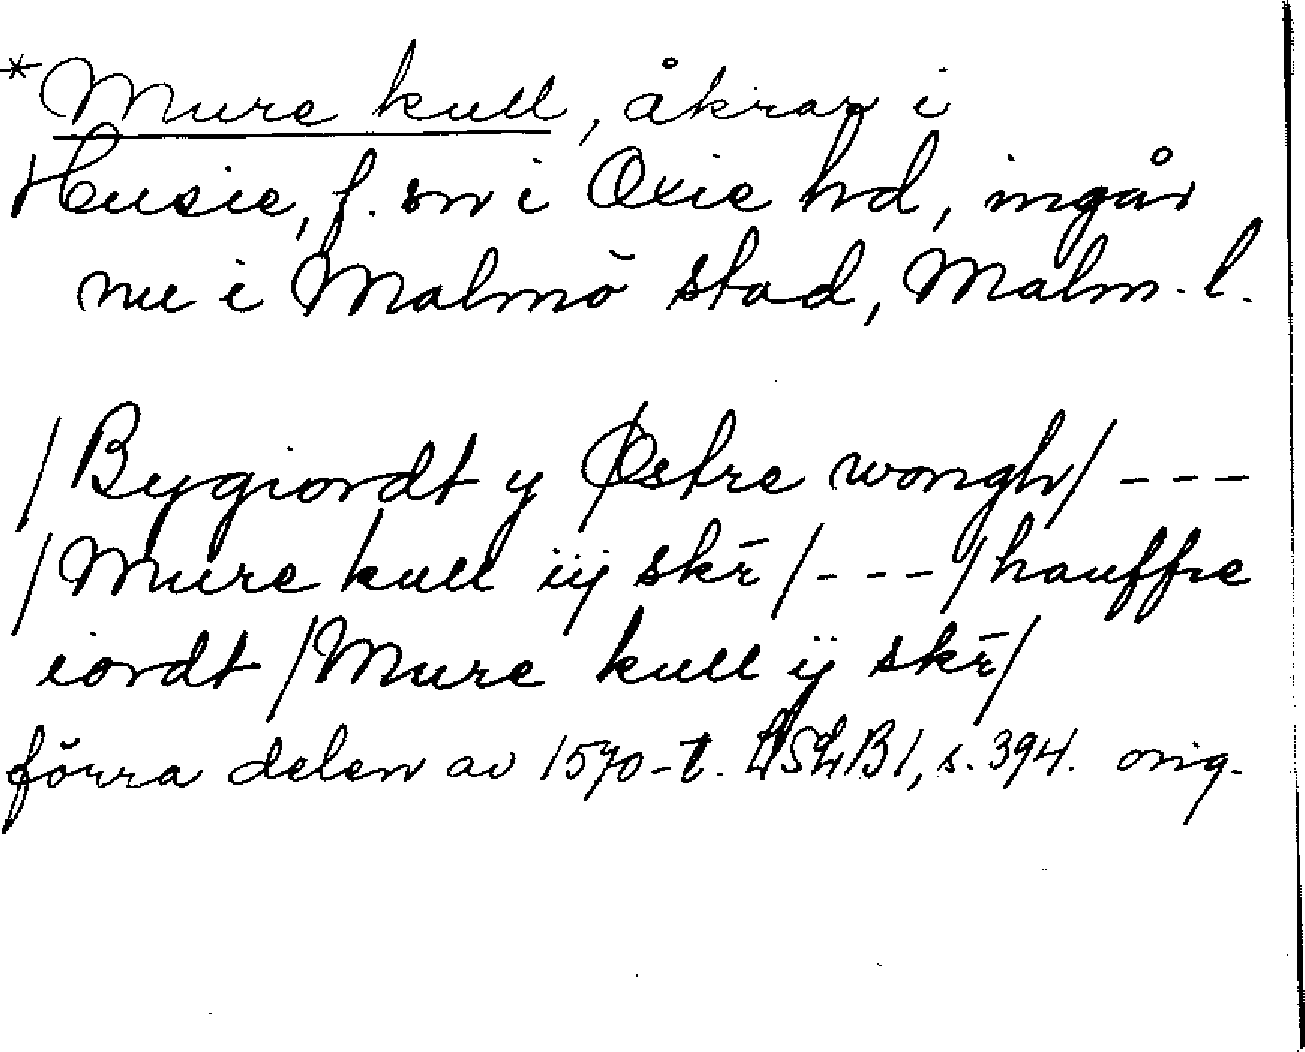 *Mure kull, åkrar i
Husie, f. sn i Oxie hd, ingår
nu i Malmö stad, Malm. l.
/Bygiordt y Østre wongh/ ---
/Mure kull iij skr̄ /---/hauffre
iordt /Mure kull ij skr̄/
förra delen av 1570-t. LSLB1, s. 394. orig.